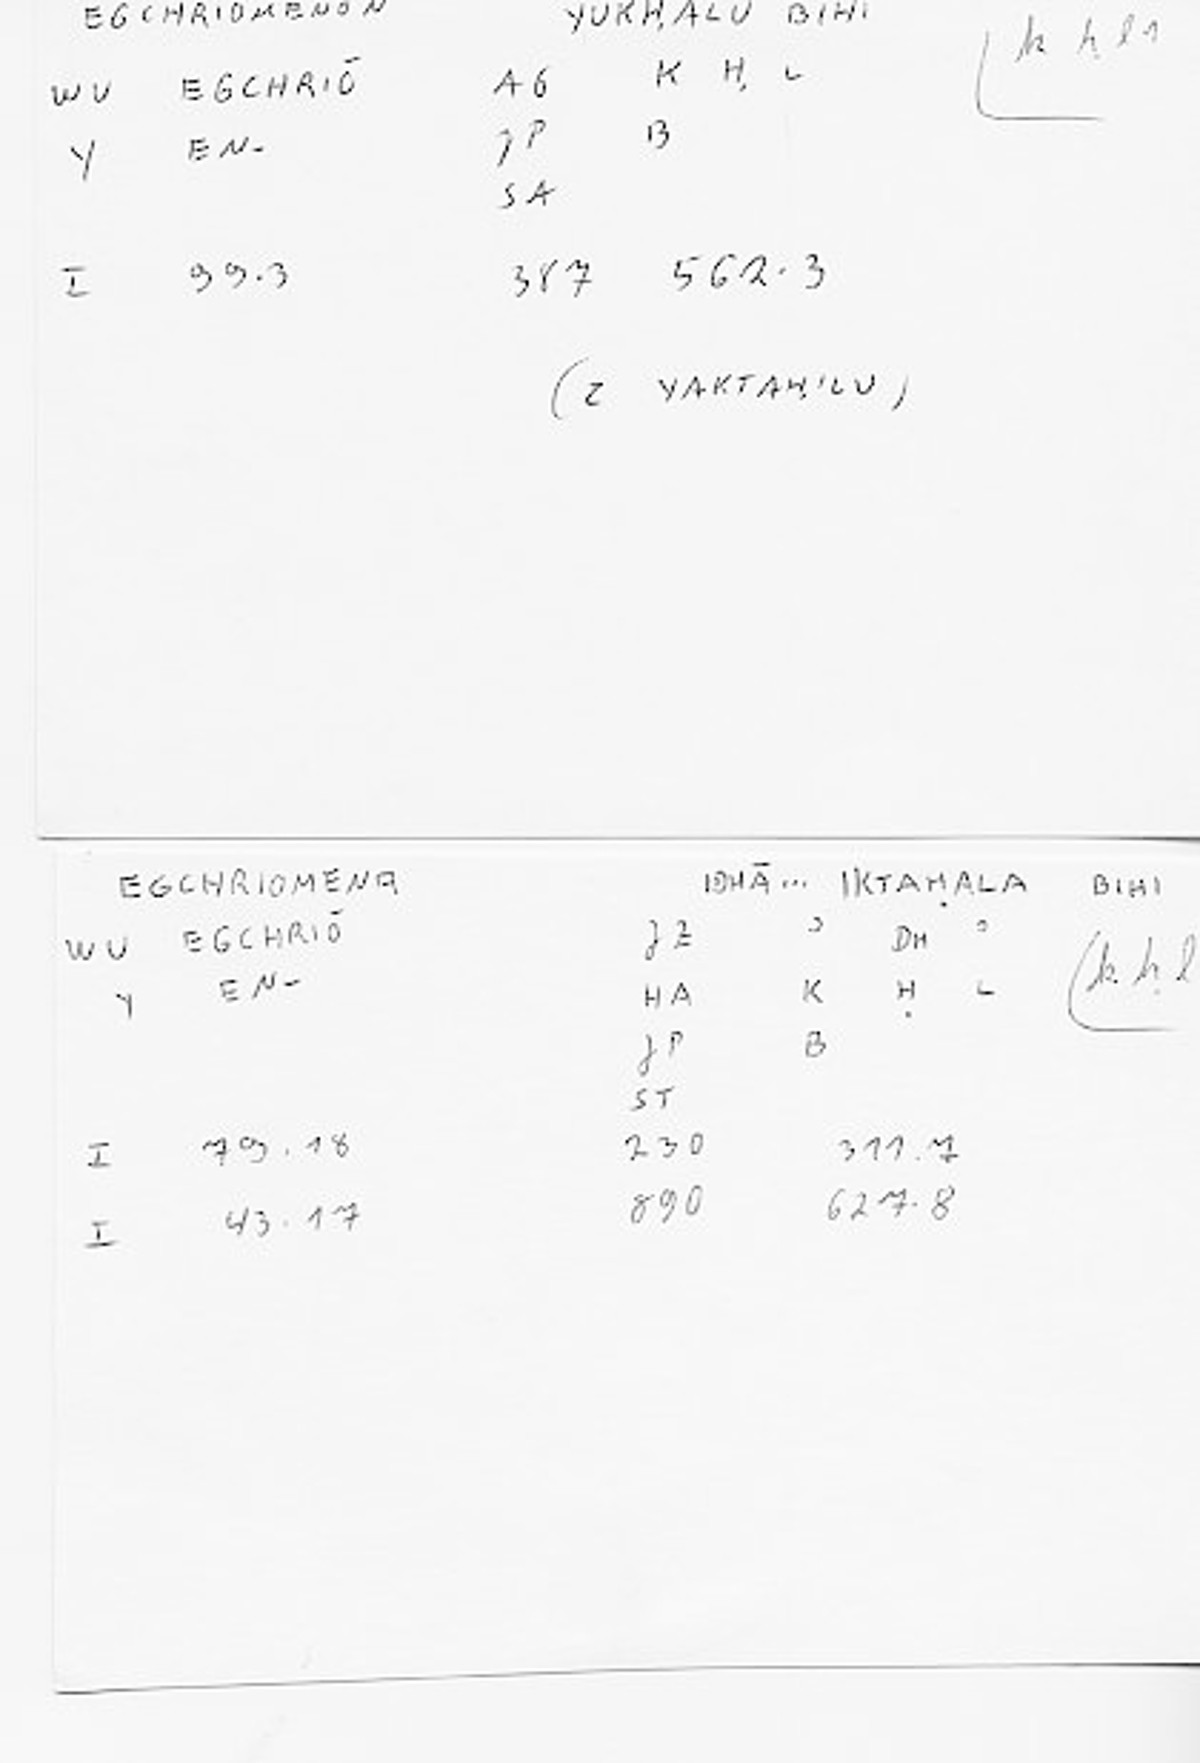 EGCHRIOMENON YUKḤALU BIHI
WU EGCHRIŌ AG K Ḥ L (k ḥ l 1
Y EN- JP B
SA
I 99.3 387 562.3
(Z YAKTAḤILU)
EGCHRIOMENA IDHĀ... IKTAḤALA BIHI
WU EGCHRIŌ JZ ʾ DH ʾ
Y EN- HA K Ḥ L (k ḥ l
JP B
ST
I 79.18 230 311.7
I 43.17 890 627.8